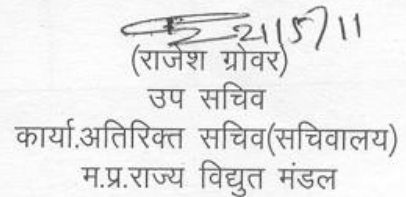 21/5/11
(राजेश ग्रोवर)
उप सचिव
कार्या.अतिरिक्त सचिव(सचिवालय)
म.प्र.राज्य विद्युत मंडल